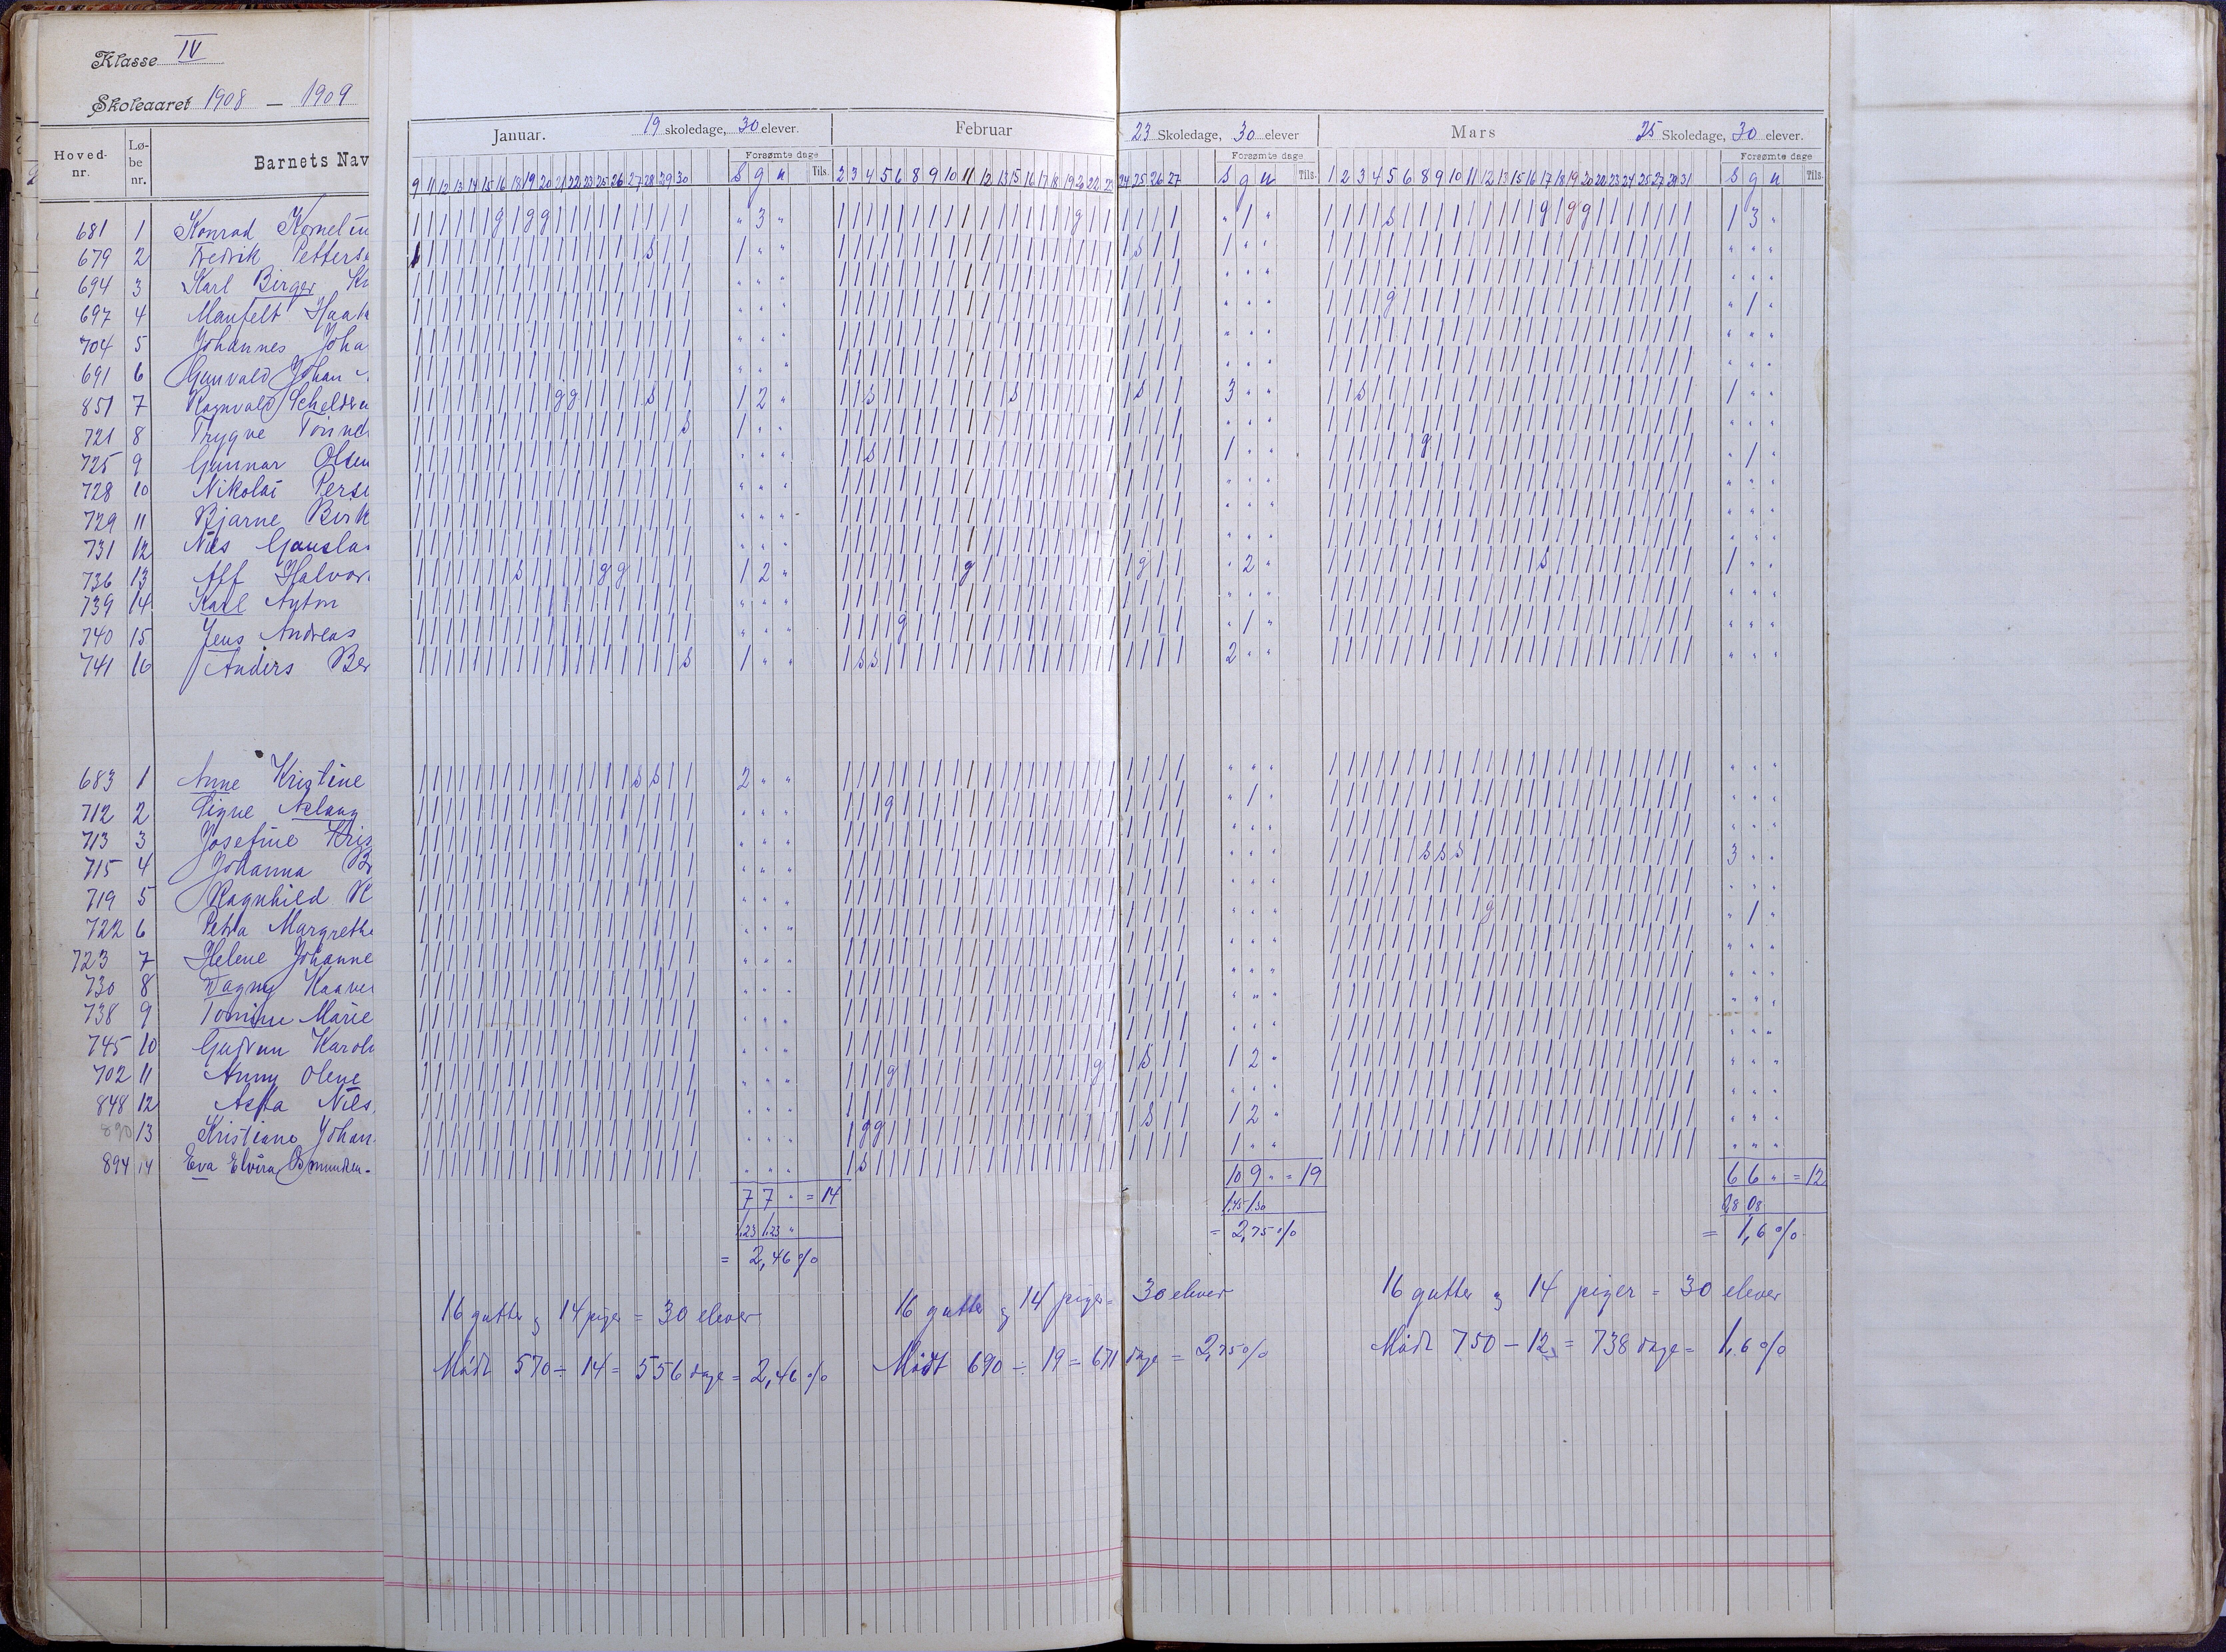 Klasse IV
Skoleaaret 1908 – 1909
Januar. 19 skoledage, 30 elever. Februar 23 Skoledage, 30 elever Mars 25 Skoledage, 30 elever.
Hoved-nr. Lø-be nr. Barnets Nav
Forsømte dage Forsømte dage Forsømte dage
9 11 12 13 14 15 16 18 19 20 21 22 23 25 26 27 28 29 30 s g u Tils. 2 3 4 5 6 8 9 10 11 12 13 15 16 17 18 19 20 22 23 24 25 26 27 s g u Tils. 1 2 3 4 5 6 8 9 10 11 12 13 15 16 17 18 19 20 22 23 24 25 27 29 31 s g u Tils.
681 1 Konrad Korneliu " 3 " " 1 " 1 3 "
679 2 Fredrik Petters 1 " " 1 " " " " "
694 3 Karl Birger Kr " " " " " " " " "
697 4 Manfelt Haak " " " " " " " 1 "
704 5 Johannes Joha " " " " " " " " "
691 6 Gunvald Johan " " " " " " " " "
851 7 Ragnvald Scheldru 1 2 " 3 " " 1 " "
721 8 Trygve Tønne 1 " " " " " " " "
725 9 Gunnar Olsen " " " 1 " " " 1 "
728 10 Nikolai Perse " " " " " " " " "
729 11 Bjarne Birk " " " " " " " " "
731 12 Nils Gausla " " " " " " " " "
736 13 Alf Halvor 1 2 " " 2 " 1 " "
739 14 Karl Anton " " " " " " " " "
740 15 Jens Andreas " " " " 1 " " " "
741 16 Anders Ber 1 " " 2 " " " " "
683 1 Anne Kristine 2 " " " " " " " "
712 2 Signe Aslaug " " " " 1 " " " "
713 3 Josefine Kris " " " " " " " " "
715 4 Johanna B " " " " " " 3 " "
719 5 Ragnhild K " " " " " " " " "
722 6 Petra Margrethe " " " " " " " 1 "
723 7 Helene Johanne " " " " " " " " "
730 8 Dagny Kaaver " " " " " " " " "
738 9 Tomine Marie " " " " " " " " "
745 10 Gudrun Karoli " " " " " " " " "
702 11 Anny Olene " " " 1 2 " " " "
848 12 Asta Nils " " " " " " " " "
890 13 Kristiane Johan " " " 1 2 " " " "
894 14 Eva Elvira Osmundsen " " " 1 " " " " "
7 7 " = 14 10 9 " = 19 6 6 " = 12
1,23 1,23 " 1,45 1,30 0,8 0,8
= 2,46 % = 2,75 % = 1,6 %
16 gutter og 14 piger = 30 elever 16 gutter og 14 piger = 30 elever 16 gutter og 14 piger = 30 elever
Mødt 570 ÷ 14 = 556 dage = 2,46 % Mødt 690 ÷ 19 = 671 dage = 2,75 % Mødt 750 – 12 = 738 dage = 1,6 %